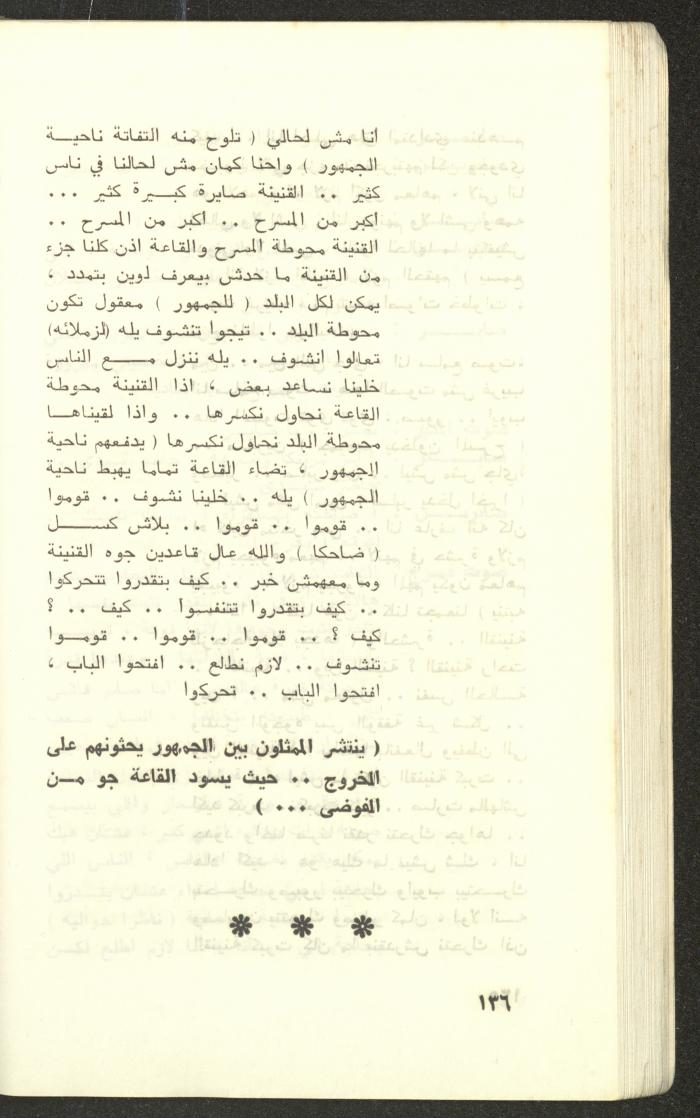 أنا مش لحالي ( تلوح منه التفاتة ناحيــة
الجمهور ) واحنا كمان مش لحالنا في ناس
كثير .. القنينة صايرة كبـــيرة كثير ...
أكبر من المسرح .. أكبر من المسرح ..
القنينة محوطة المسرح والقاعة اذن كلنا جزء
من القنينة ما حدش بيعرف لوين بتمدد ،
يمكن لكل البلد ( للجمهور ) معقول تكون
محوطة البلد .. تيجوا تنشوف يله (لزملائه)
تعالوا انشوف .. يله ننزل مـــــع الناس
خلينا نساعد بعض ، اذا القنينة محوطة
القاعة نحاول نكسرها .. واذا لقيناهــا
محوطة البلد نحاول نكسرها ( يدفعهم ناحية
الجمهور ، تضاء القاعة تماما يهبط ناحية
الجمهور ) يله .. خلينا نشوف .. قوموا
.. قوموا .. قوموا .. بلاش كســـــل
( ضاحكا ) والله عال قاعدين جوه القنينة
وما معهمش خبر .. كيف بتقدروا تتحركوا
.. كيف بتقدروا تتنفسوا .. كيف .. ؟
كيف ؟ .. قوموا .. قوموا .. قومــوا
تنشوف .. لازم نطالع .. افتحوا الباب ،
افتحوا الباب .. تحركوا
( ينتشر الممثلون بين الجمهور يحثونهم على
الخروج .. حيث يسود القاعة جو مــن
الفوضى ... )
١٣٦